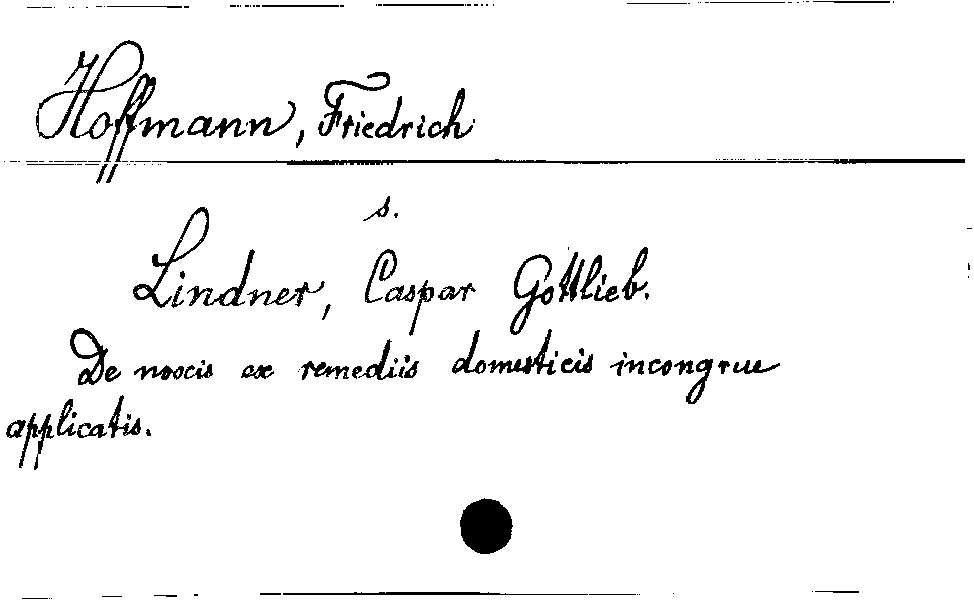 Hoffmann, Friedrich
s.
Lindner, Caspar Gottlieb.
De noxis ex remediis domesticis incongrue
applicatis.